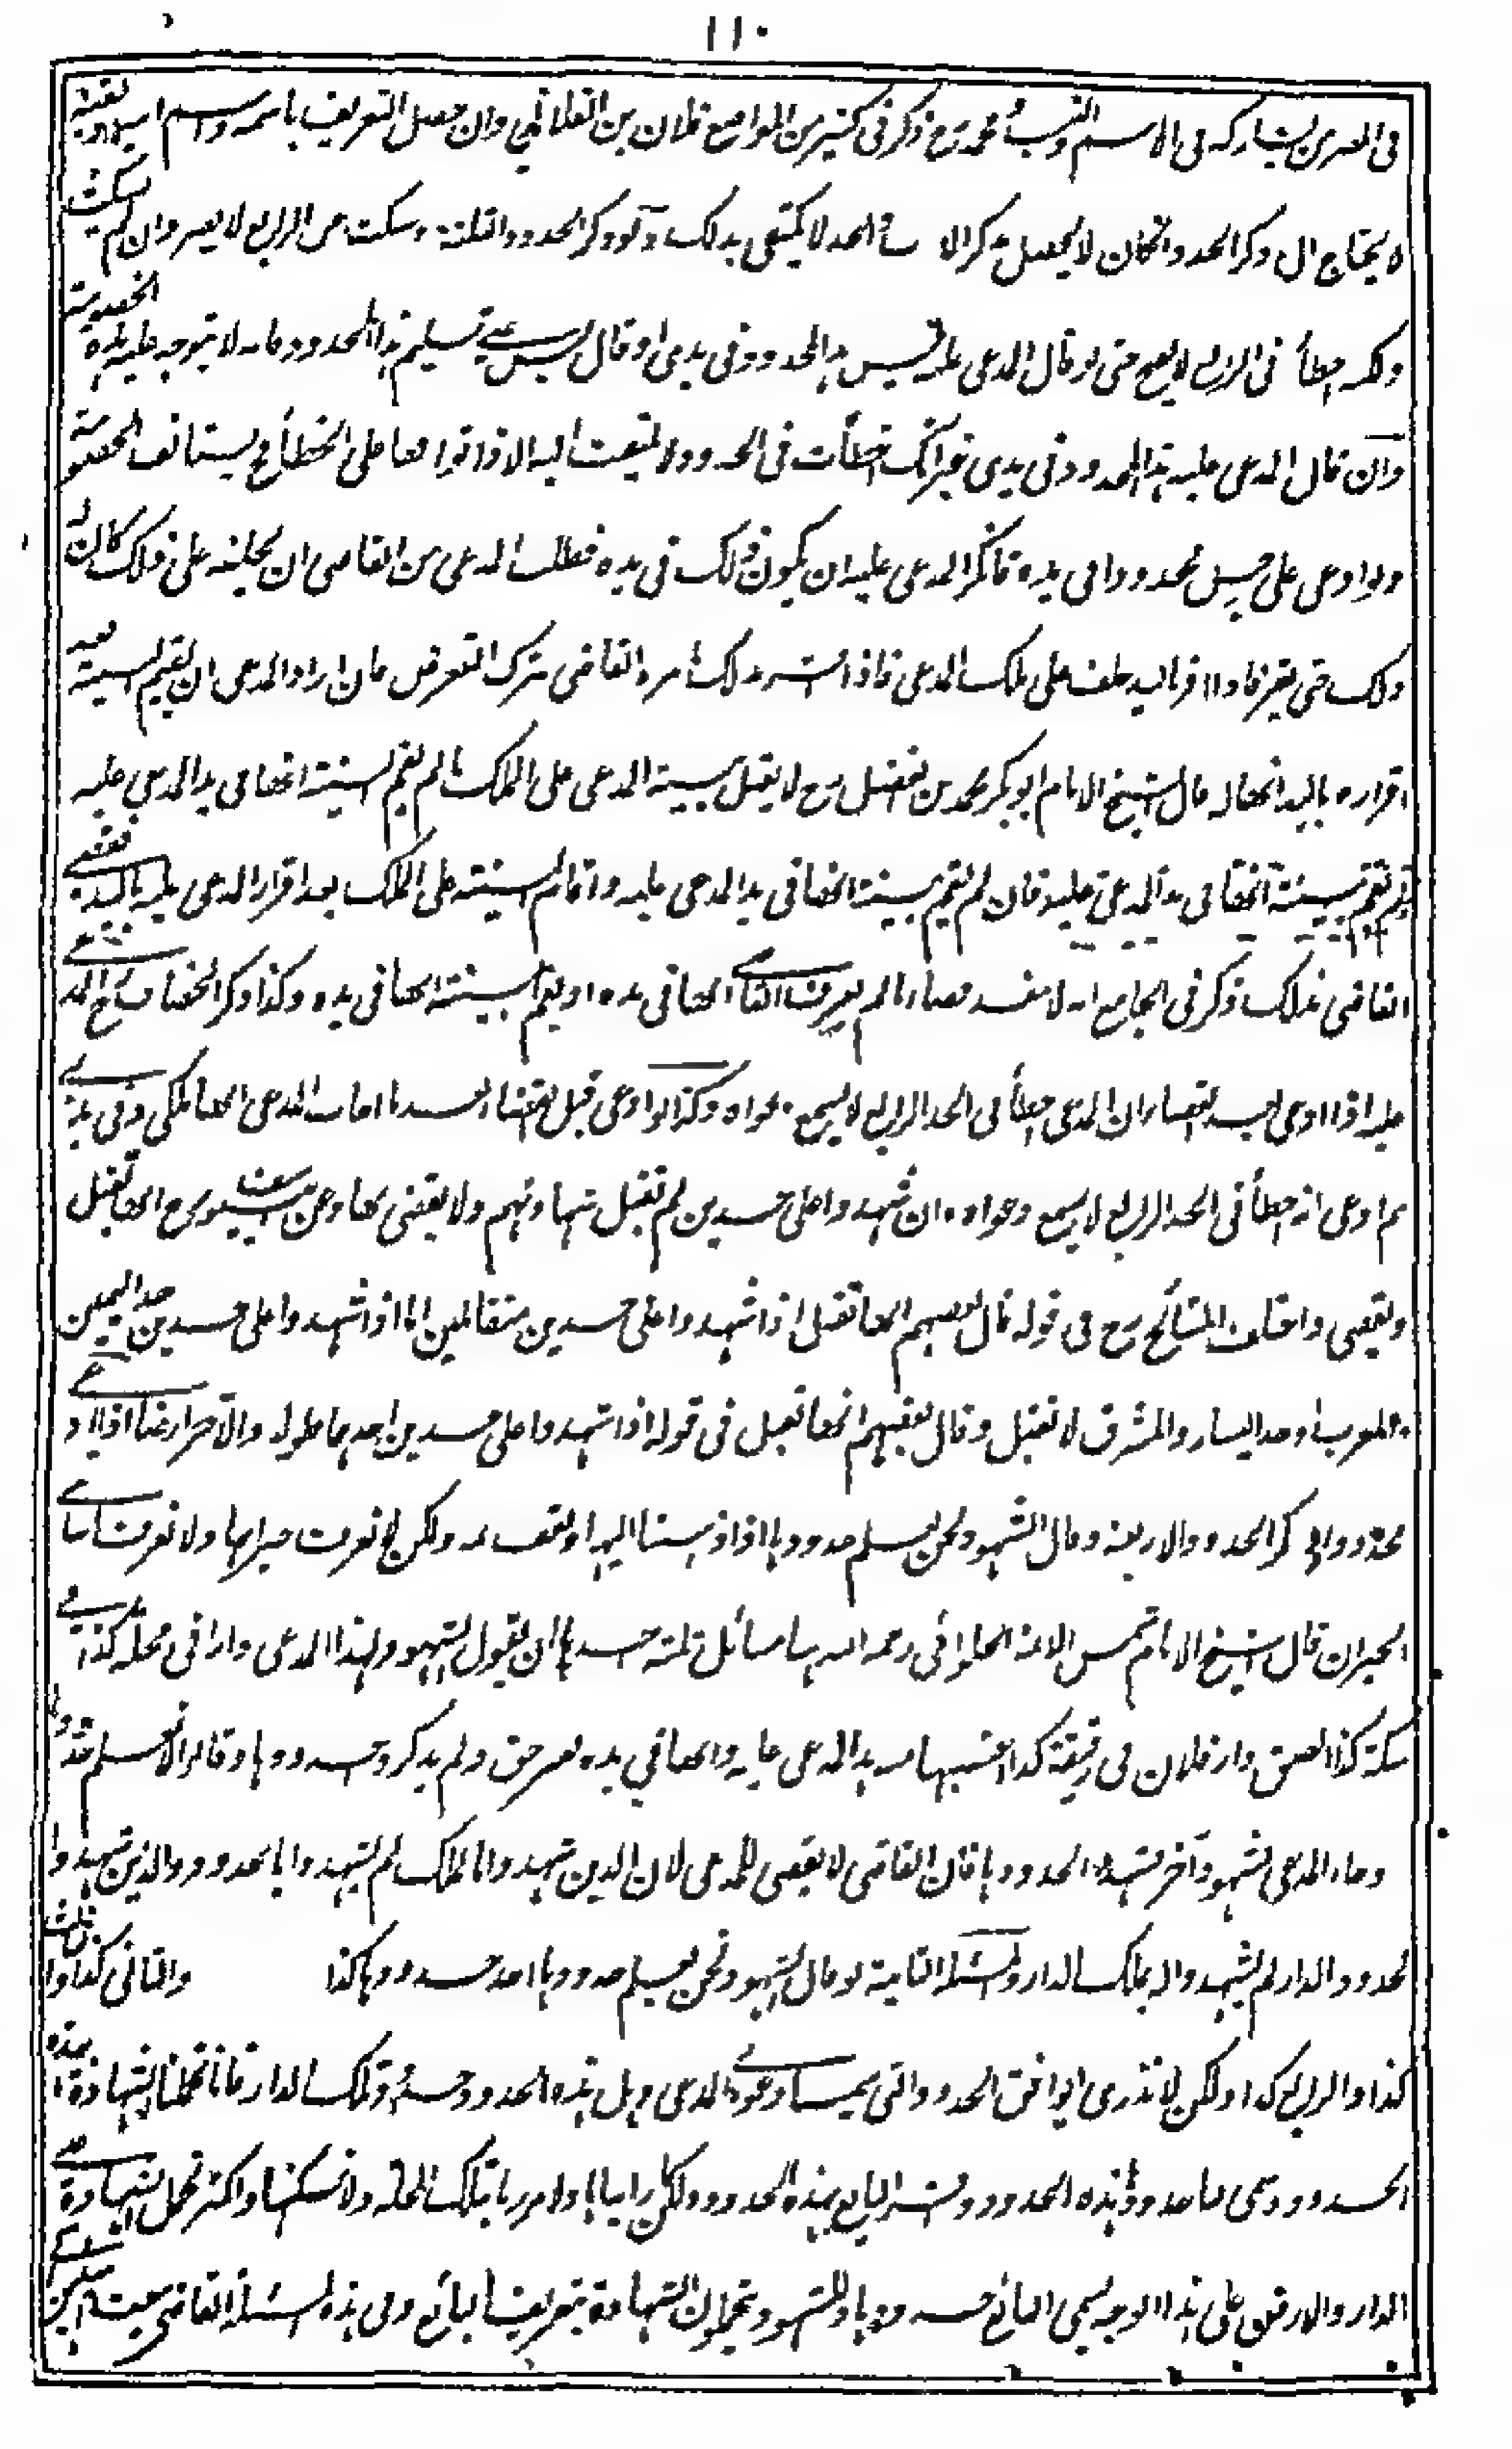 ١١٠
فى المصر من يشاركه فى الاسم والنسب محمد رح ذكر فى كثير من المواضع فلان بن الفلانى وان حصل التعريف باسمه واسم ابيه ولقبه
لا يحتاج الى ذكر الجد وان كان لا يحصل بذكر الاب والجد لا يكتفى بذلك ولو ذكر الحدود الثلثة وسكت عن الرابع لا يضر وان لم يسكت
ولكنه اخطأ فى الرابع لا يصح حتى لو قال المدعى عليه ليس هذا المحدود فى يدى او قال ليس على تسليم هذا المحدود فانه لا تتوجه عليه هذه الخصومة
وان قال المدعى عليه هذا المحدود فى يدى غير انك اخطأت فى الحدود لا يلتفت اليه الا اذا توافقا على الخطأ فح يستانف الخصومة
ولو ادعى على رجل محدودا فى يده فانكر المدعى عليه ان يكون ذلك فى يده فطلب المدعى من القاضى ان يحلفه على ذلك كان له
ذلك حتى يقر فاذا اقر باليد حلف على ملك المدعى فاذا اقر بذلك امره القاضى بترك التعرض فان اراد المدعى ان يقيم البينة بعد
اقراره باليد انها له قال الشيخ الامام ابو بكر محمد بن الفضل رح لا يقبل بينة المدعى على الملك ما لم يقم البينة انها فى يد المدعى عليه
لم تقم بينته انها فى يد المدعى عليه فان لم يقم بينة انها فى يد المدعى عليه واقام البينة على الملك بعد اقرار المدعى عليه باليد فقضى
القاضى بذلك ذكر فى الجامع انه لا ينفذ قضاؤه ما لم يعرف القاضى انها فى يده او يقيم البينة انها فى يده وكذا ذكر الخصاف رح المدعى
عليه اذا ادعى بعد القضاء ان المدعى اخطأ فى الحد الرابع لا يسمع دعواه وكذا لو ادعى قبل القضاء بعد ما اجاب المدعى انها ملكى وفى يدى
ثم ادعى انه اخطأ فى الحد الرابع لا يسمع دعواه وان شهدوا على حدين لم تقبل شهادتهم ولا يقضى بها وعن ابى يوسف رح انها تقبل
ويقضى واختلف المشائخ رح فى قوله قال بعضهم انها تقبل اذا شهدوا على حدين متقابلين اما اذا شهدوا على حدين حد اليمين
والمغرب او حد اليسار والمشرق لا تقبل وقال بعضهم انها تقبل فى قوله اذا شهدوا على حدين احدهما طولا والآخر عرضا اذا ادعى
محدودا وذكر الحدود الاربعة وقال الشهود نحن نعلم حدودها اذا ذهبنا اليها ونقف ثمه ولكن لا نعرف جيرانها ولا نعرف اسامى
الجيران قال الشيخ الامام شمس الائمة الحلوانى رحمه الله ههنا مسائل ثلثة احدها ان يقول الشهود لهذا المدعى دارا فى محلة كذا فى
سكة كذا لصيق دار فلان فى زقيقة كذا غصبها منه هذا المدعى عليه وانها فى يده بغير حق ولم يذكروا حدودها وقالوا لا نعلم حدودها
وجاء المدعى بشهود آخر يشهدوا بحدودها فان القاضى لا يقضى للمدعى لان الذين شهدوا بالملك لم يشهدوا بالحدود والذين شهدوا
بحدود الدار لم يشهدوا له بملك الدار والمسئلة الثانية لو قال الشهود نحن نعلم حدودها احد حدودها كذا والثانى كذا والثالث
كذا والرابع كذا ولكن لا ندرى ايوافق الحدود التى يسميها المدعى وهل هذه الحدود حدود تلك الدار فانا تحملنا الشهادة بهذه
الحدود وسمى لنا حدود هذه الحدود ... البائع بهذه الحدود ولكن ما راينا ولا مررنا بتلك المحلة ولا نسكنها واكثر تحمل الشهادة على
الدار والارض على هذا الوجه يسمى البائع حدودها والشهود يتحملون الشهادة بتعريف البائع وفى هذه المسئلة القاضى يبعث امينين